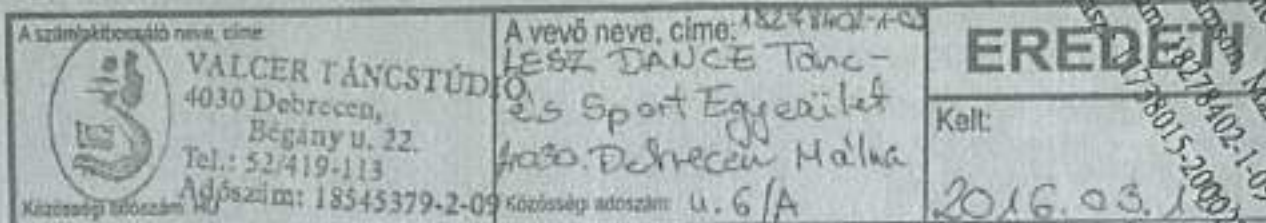 A számlakibocsátó neve, címe:
VALCER TÁNCSTÚDIÓ
4030 Debrecen,
Bégány u. 22.
Tel.: 52/419-113
Adószám: 18545379-2-09
Közösségi adószám: HU
A vevő neve, címe: 18278402-1-09
LESZ DANCE Tánc-
és Sport Egyesület
4030. Debrecen Málna
u. 6/A
Közösségi adószám:
EREDETI
Kelt:
2016. 03. 1
8278402-1-09
1738015-2000